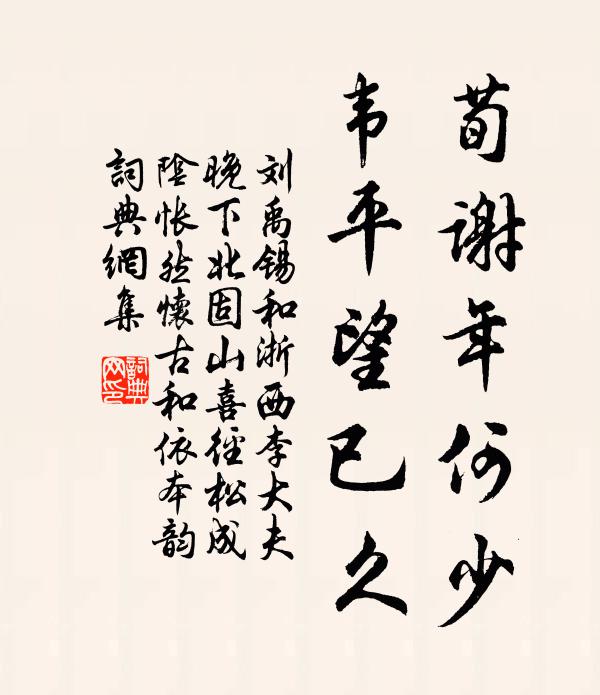 荀谢年何少
韦平望已久
刘禹锡和浙西李大夫
晚下北固山喜徑松成
陰怅然懷古和依本韵
詞典網集
詞典
网印